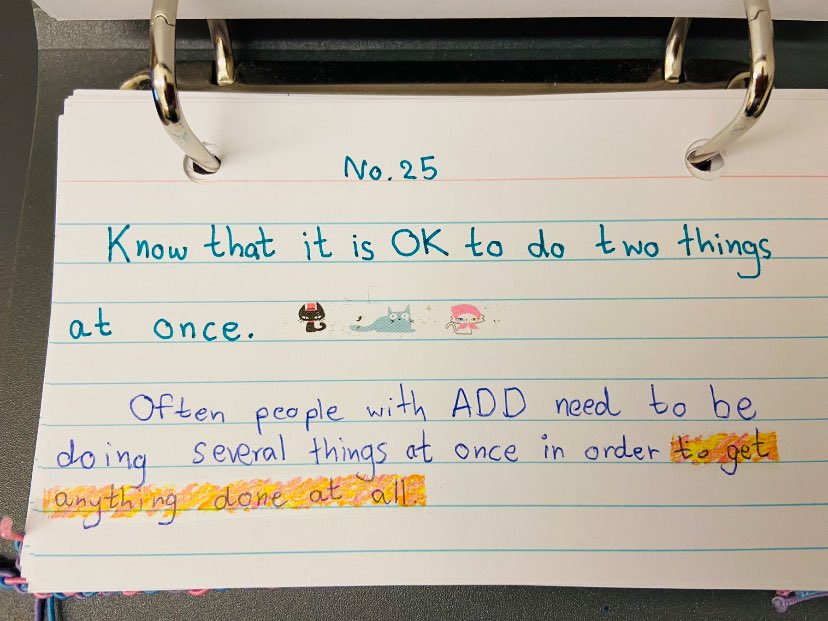 No. 25
Know that it is OK to do two things
at once.
Often people with ADD need to be
doing several things at once in order to get
anything done at all.